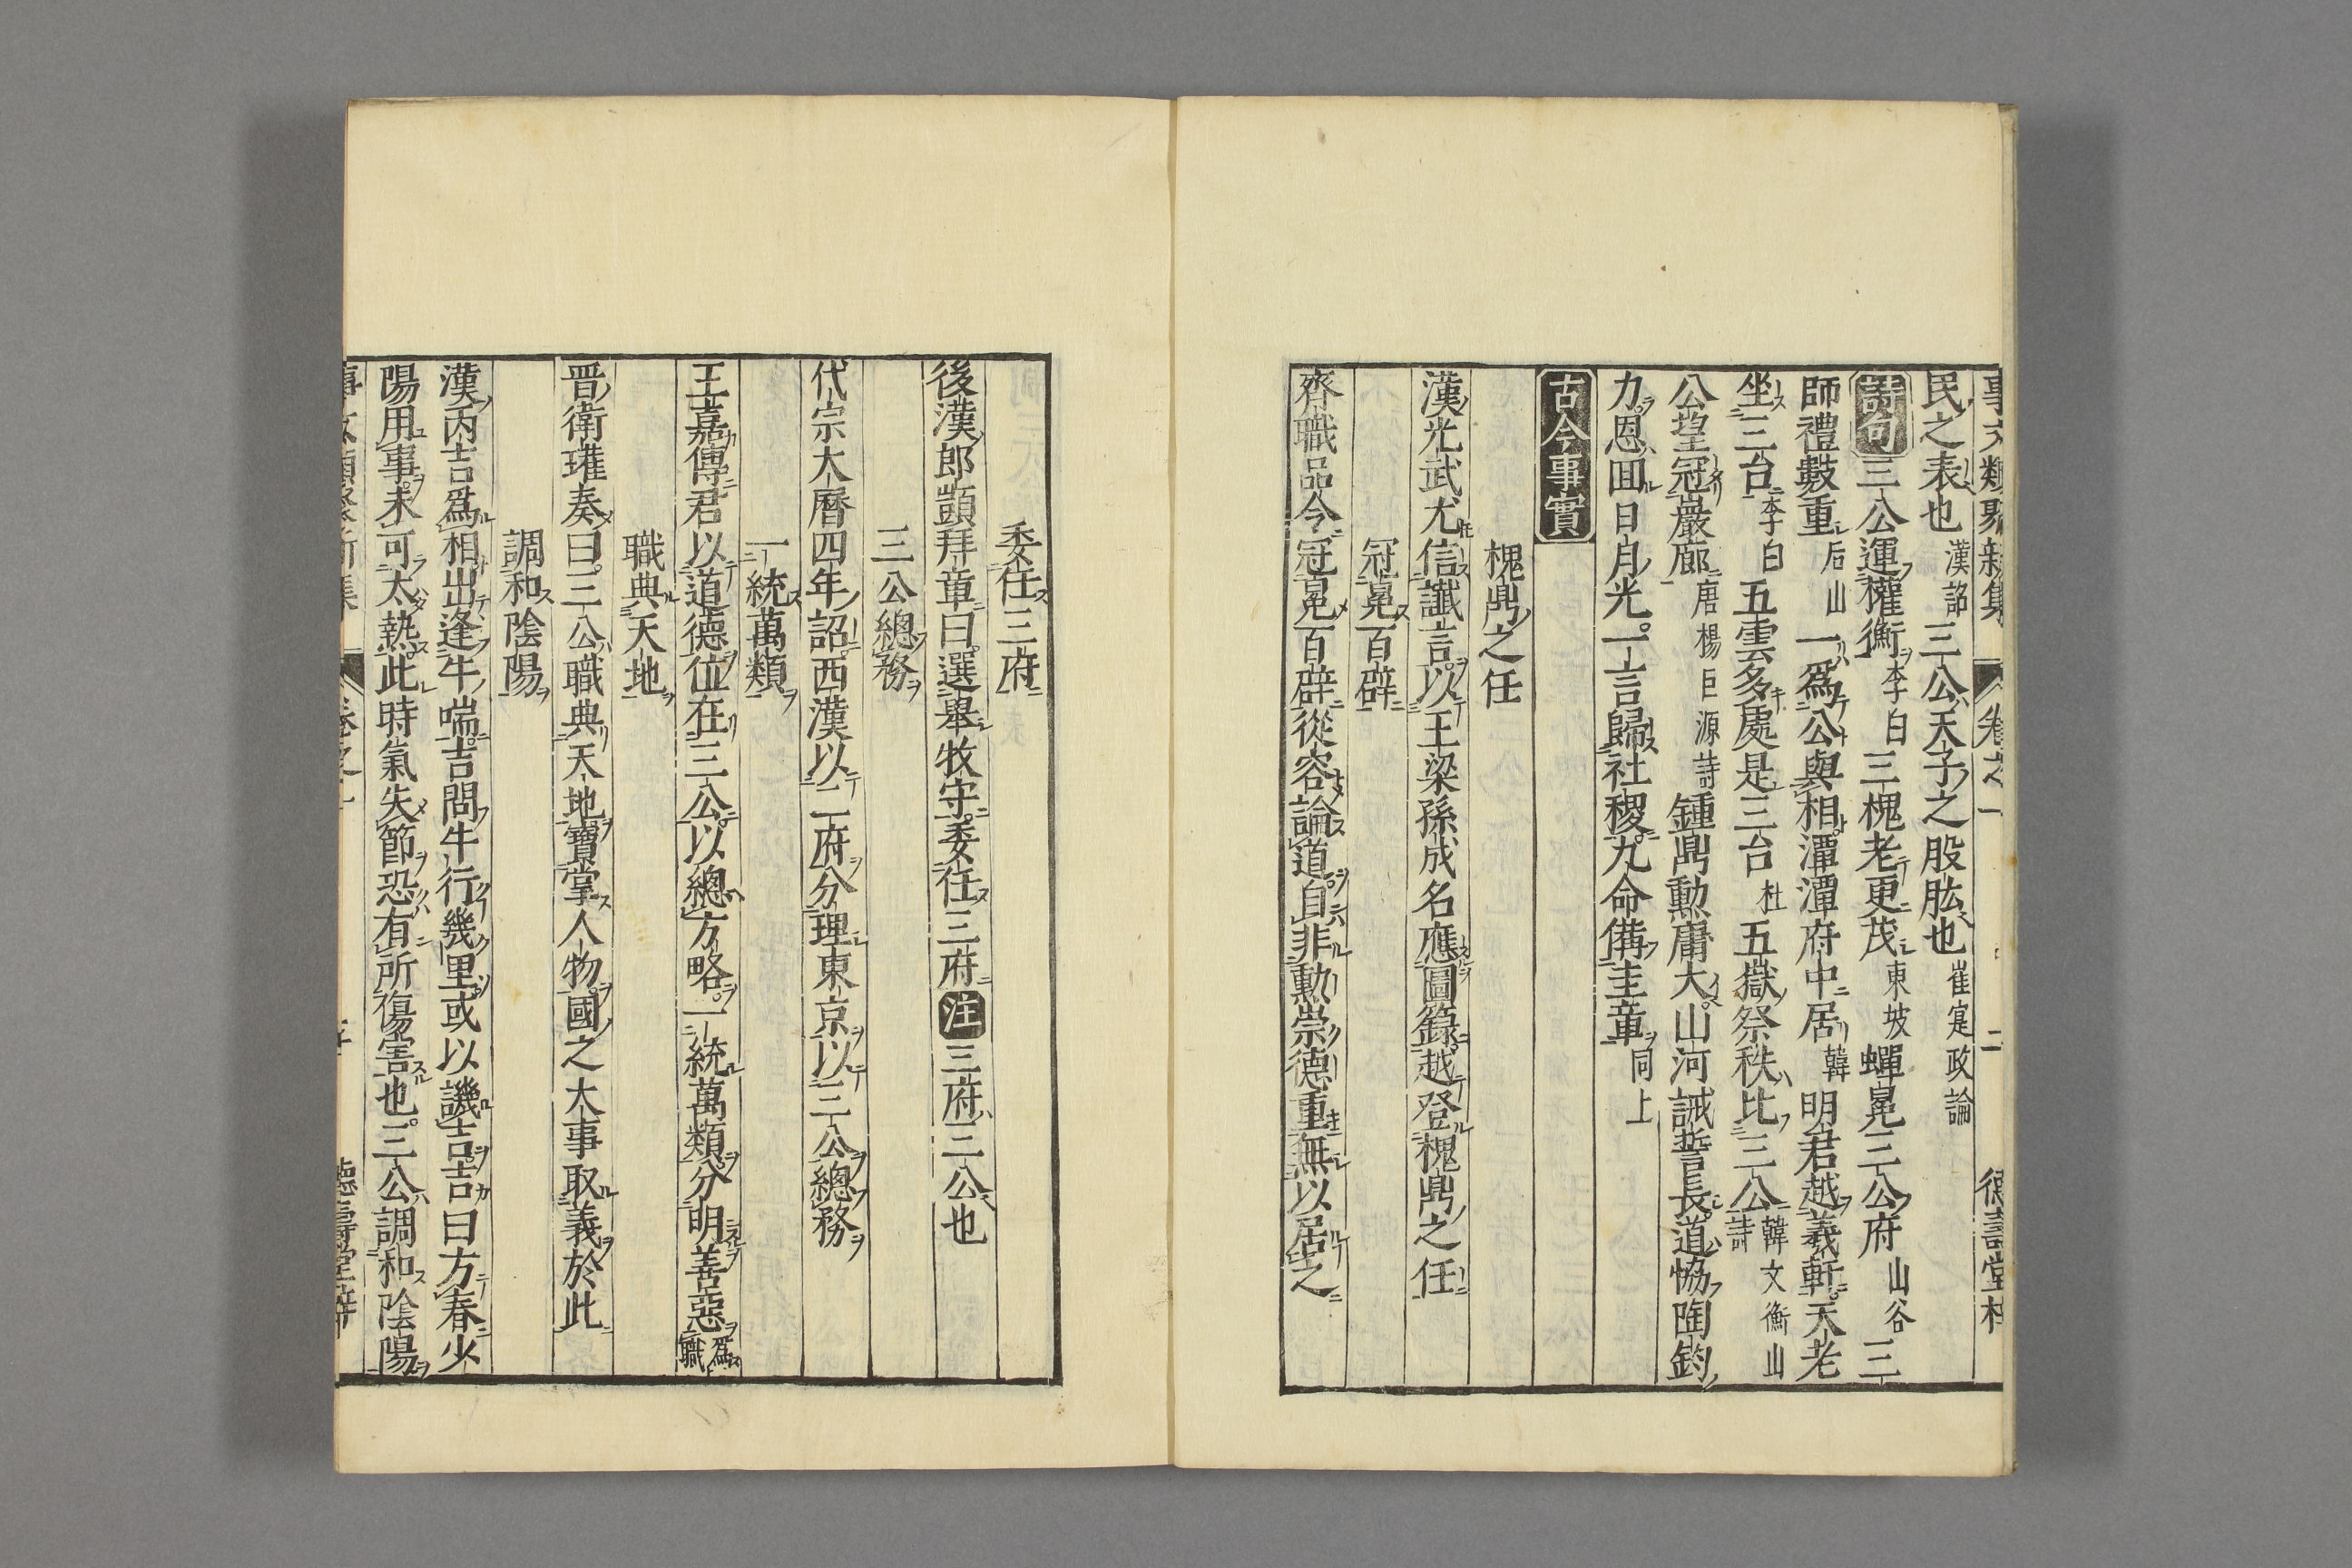 事文類聚新集 卷之一 二 德壽堂梓
民之表也漢詔三公天子之股肱也崔寔政論
詩句三公運權衡李白三槐老更茂東坡蟬冕三公府山谷三
師禮數重后山一爲公與相潭潭府中居韓明君越羲軒天老
坐三台李白五雲多處是三台杜五嶽祭秩比三公韓文衡山詩
公揘冠巖廊唐楊巨源詩鍾鼎勲庸大山河誡誓長道恊陶鈞
力恩囬日月光一言歸社稷九命備圭章同上
古今事實
槐鼎之任
漢光武尤信讖言以王梁孫成名應圖籙越登槐鼎之任
冠冕百辟
齊職品令冠冕百辟從容論道自非勲崇德重無以居之
委任三府
後漢郎顗拜章曰選舉牧守委任三府注三府三公也
三公總務
代宗大曆四年詔西漢以二府分理東京以三公總務
一統萬類
王嘉傳君以道德位在三公以總方略一統萬類分明善惡爲職
職典天地
晋衛瓘奏曰三公職典天地實掌人物國之大事取義於此
調和陰陽
漢丙吉爲相出逢牛喘吉問牛行幾里或以譏吉吉曰方春少
陽用事未可太熱此時氣失節恐有所傷害也三公調和陰陽